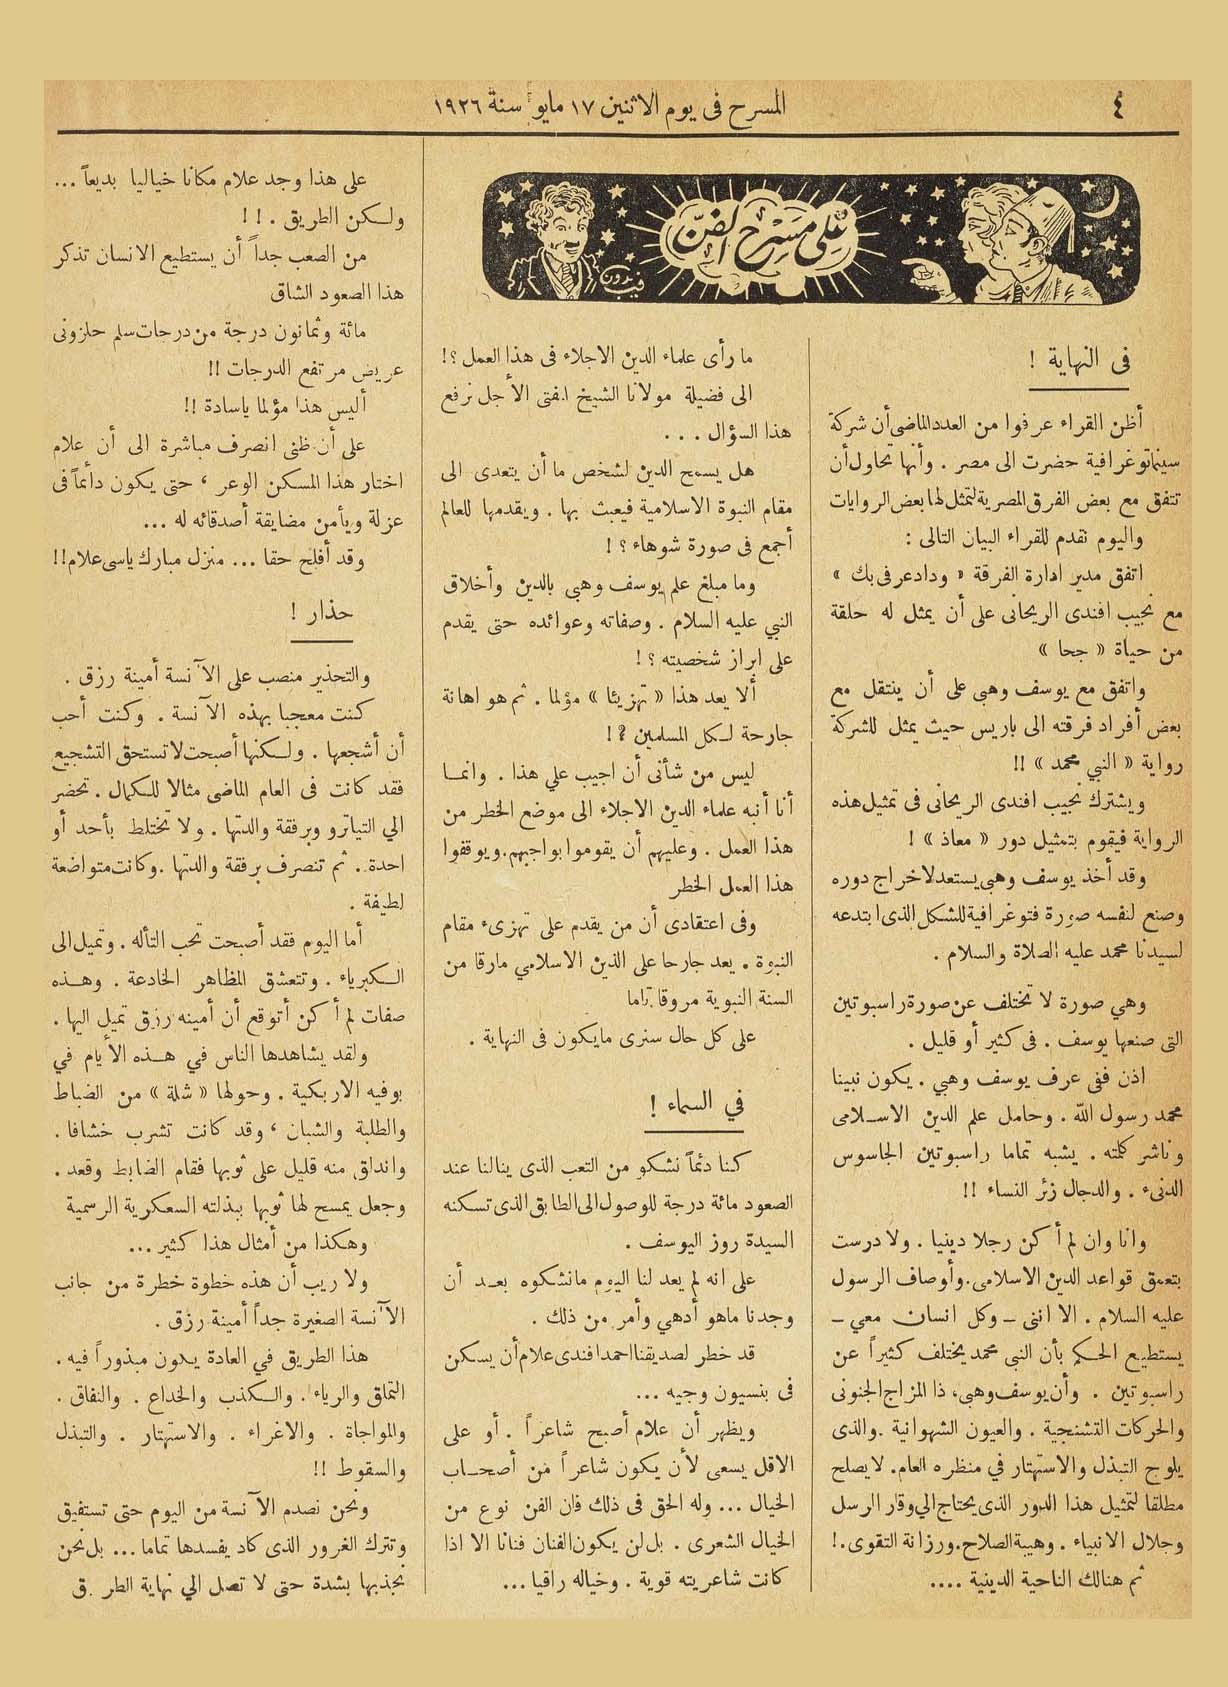 ٤
المسرح فى يوم الاثنين ١٧ مايو سنة ١٩٢٦
على مسرح الفن
فيدون
فى النهاية !
أظن القراء عرفوا من العدد الماضى أن شركة
سينماتوغرافية حضرت الى مصر . وأنها تحاول أن
تتفق مع بعض الفرق المصرية لتمثل لها بعض الروايات
واليوم نقدم للقراء البيان التالى :
اتفق مدير ادارة الفرقة « وداد عرفى بك »
مع نجيب افندى الريحانى على أن يمثل له حلقة
من حياة « جحا »
واتفق مع يوسف وهبى على أن ينتقل مع
بعض أفراد فرقته الى باريس حيث يمثل للشركة
رواية « النبي محمد » !!
ويشترك نجيب افندى الريحانى فى تمثيل هذه
الرواية فيقوم بتمثيل دور « معاذ » !
وقد أخذ يوسف وهبى يستعد لاخراج دوره
وصنع لنفسه صورة فتوغرافية للشكل الذى ابتدعه
لسيدنا محمد عليه الصلاة والسلام .
وهي صورة لا تختلف عن صورة راسبوتين
التى صنعها يوسف . فى كثير أو قليل .
اذن ففى عرف يوسف وهبي . يكون نبينا
محمد رسول الله . وحامل علم الدين الاسلامى
وناشر كلمته . يشبه تماما راسبوتين الجاسوس
الدنىء . والدجال زئر النساء !!
وانا وان لم أكن رجلا دينيا . ولا درست
بتعمق قواعد الدين الاسلامى . وأوصاف الرسول
عليه السلام . الا اننى ــ وكل انسان معي ــ
يستطيع الحكم بأن النبى محمد يختلف كثيراً عن
راسبوتين . وأن يوسف وهبى، ذا المزاج الجنونى
والحركات التشنجية . والعيون الشهوانية . والذى
يلوح التبذل والاستهتار في منظره العام. لا يصلح
مطلقا لتمثيل هذا الدور الذى يحتاج الي وقار الرسل
وجلال الانبياء . وهيبة الصلاح. ورزانة التقوى.!
ثم هنالك الناحية الدينية ....
ما رأى علماء الدين الاجلاء فى هذا العمل ؟!
الى فضيلة مولانا الشيخ المفتى الأجل نرفع
هذا السؤال ...
هل يسمح الدين لشخص ما أن يتعدى الى
مقام النبوة الاسلامية فيعبث بها . ويقدمها للعالم
أجمع فى صورة شوهاء ؟ !
وما مبلغ علم يوسف وهبي بالدين وأخلاق
النبي عليه السلام . وصفاته وعوائده حتى يقدم
على ابراز شخصيته ؟ !
ألا يعد هذا « تهزيئا » مؤلما . ثم هو اهانة
جارحة لكل المسلمين ؟!
ليس من شأنى أن اجيب علي هذا . وانما
أنا أنبه علماء الدين الاجلاء الى موضع الخطر من
هذا العمل . وعليهم أن يقوموا بواجبهم. ويوقفوا
هذا العمل الخطر
وفى اعتقادى أن من يقدم على تهزىء مقام
النبوة . يعد جارحا على الدين الاسلامي مارقا من
السنة النبوية مروقا تاما
على كل حال سنرى ما يكون فى النهاية .
في السماء !
كنا دئماً نشكو من التعب الذى ينالنا عند
الصعود مائة درجة للوصول الى الطابق الذى تسكنه
السيدة روز اليوسف .
على انه لم يعد لنا اليوم مانشكوه بعد أن
وجدنا ماهو أدهي وأمر من ذلك .
قد خطر لصديقنا احمد افندى علام أن يسكن
فى بنسيون وجيه ...
ويظهر أن علام أصبح شاعراً . أو على
الاقل يسعى لأن يكون شاعراً من أصحاب
الخيال ... وله الحق فى ذلك فان الفن نوع من
الخيال الشعرى . بل لن يكون الفنان فنانا الا اذا
كانت شاعريته قوية . وخياله راقيا ...
على هذا وجد علام مكانا خياليا بديعاً ...
ولكن الطريق . ! !
من الصعب جداً أن يستطيع الانسان تذكر
هذا الصعود الشاق
مائة وثمانون درجة من درجات سلم حلزونى
عريض مرتفع الدرجات !!
أليس هذا مؤلما ياسادة !!
على أن ظنى انصرف مباشرة الى أن علام
اختار هذا المسكن الوعر ، حتى يكون دائماً فى
عزلة ويأمن مضايقة أصدقائه له ...
وقد أفلح حقا ... منزل مبارك ياسى علام !!
حذار !
والتحذير منصب على الآنسة أمينة رزق .
كنت معجبا بهذه الآنسة . وكنت أحب
أن أشجعها . ولكنها أصبحت لا تستحق التشجيع
فقد كانت فى العام الماضى مثالا للكمال . تحضر
الي التياترو وبرفقة والدتها . ولا تختلط بأحد أو
احدة . ثم تنصرف برفقة والدتها . وكانت متواضعة
لطيفة .
أما اليوم فقد أصبحت تحب التأله . وتميل الى
الكبرياء . وتتعشق المظاهر الخادعة . وهذه
صفات لم أكن أتوقع أن أمينه رزق تميل اليها .
ولقد يشاهدها الناس في هذه الأيام في
بوفيه الازبكية . وحولها « شلة » من الضباط
والطلبة والشبان ، وقد كانت تشرب خشافا .
واندلق منه قليل على ثوبها فقام الضابط وقعد .
وجعل يمسح لها ثوبها ببذلته السعكرية الرسمية
وهكذا من أمثال هذا كثير ...
ولا ريب أن هذه خطوة خطرة من جانب
الآنسة الصغيرة جداً أمينة رزق .
هذا الطريق في العادة يكون مبذوراً فيه .
التملق والرياء . والكذب والخداع . والنفاق .
والمواجاة . والاغراء . والاستهتار . والتبذل
والسقوط !!
ونحن نصدم الآنسة من اليوم حتى تستفيق
وتترك الغرور الذى كاد يفسدها تماما ... بل نحن
نجذبها بشدة حتى لا تصل الي نهاية الطريق